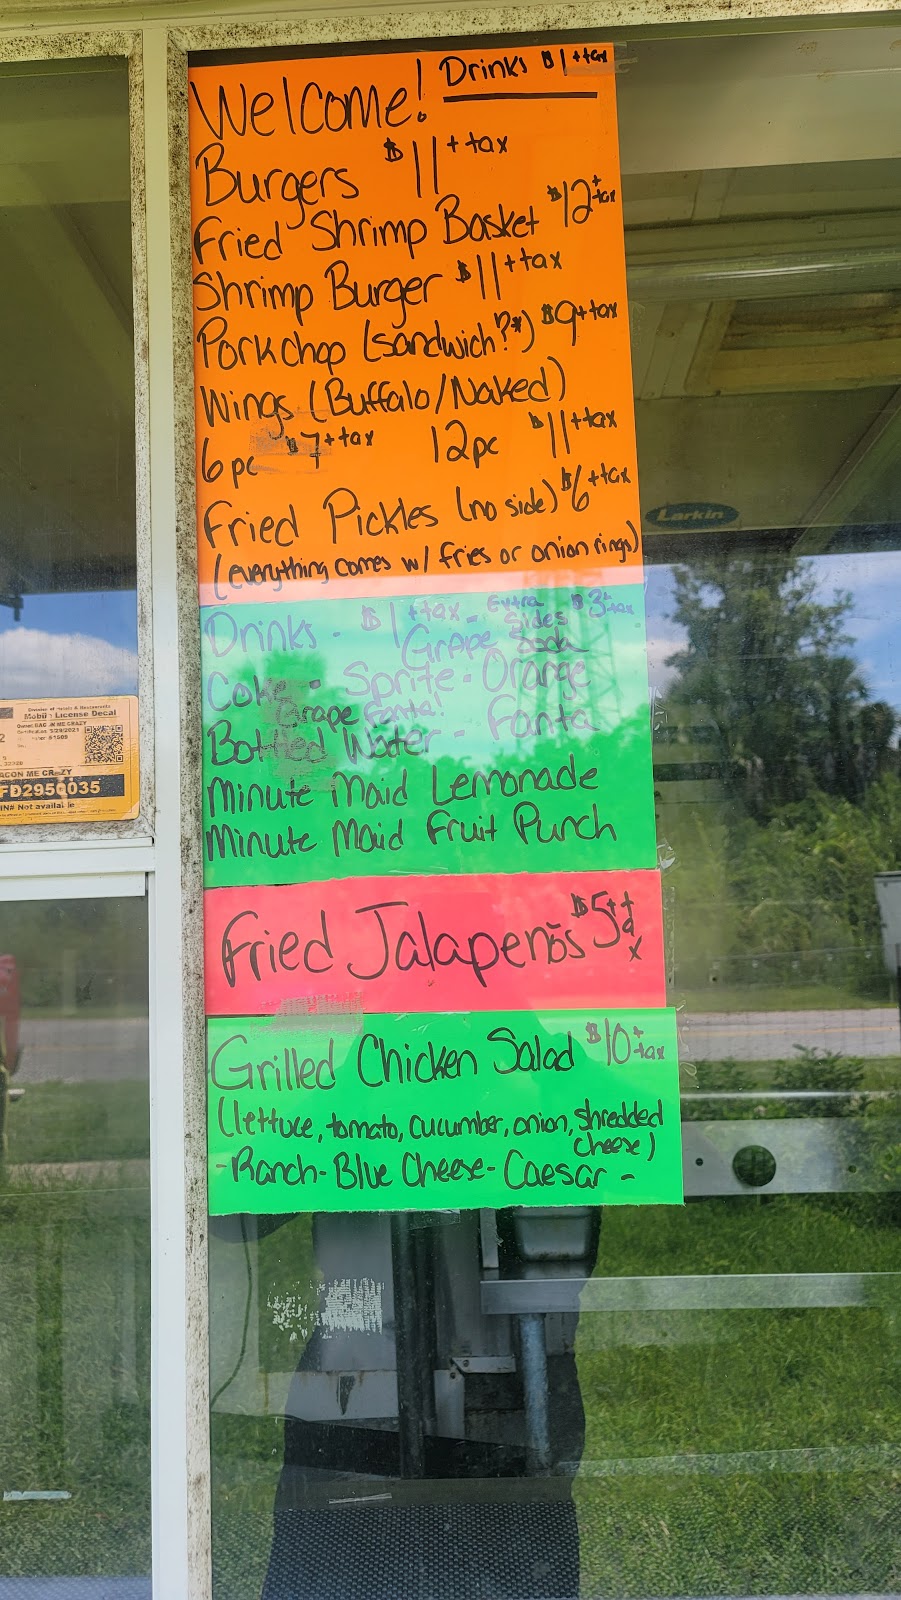 Welcome! Drinks $1+tax
Burgers $11+tax
Fried Shrimp Basket $12+tax
Shrimp Burger $11+tax
Porkchop (sandwich?*) $9+tax
Wings (Buffalo/Naked)
6pc $7+tax 12pc $11+tax
Fried Pickles (no side) $6+tax
(everything comes w/ fries or onion rings)
Drinks - $1+tax - Extra Sides $3+tax
Grape Soda
Coke - Sprite - Orange
Grape Fanta!
Bottled Water - Fanta
Minute Maid Lemonade
Minute Maid Fruit Punch
Fried Jalapenõs $5+tax
Grilled Chicken Salad $10+tax
(lettuce, tomato, cucumber, onion, shredded cheese)
-Ranch-Blue Cheese-Caesar-
Larkin
License Decal